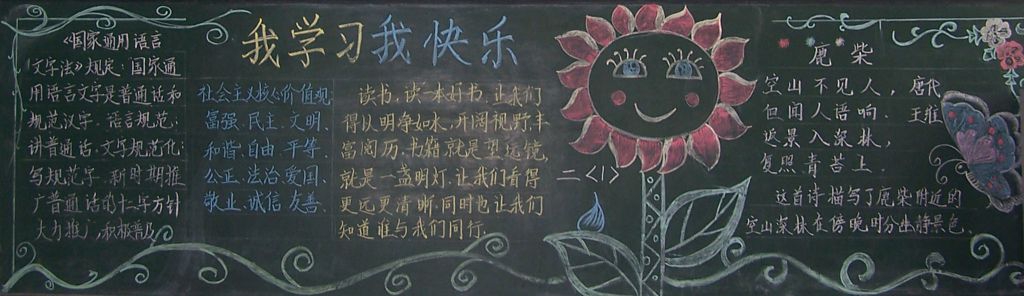 我学习我快乐
《国家通用语言
文字法》规定：国家通
用语言文字是普通话和
规范汉字。语言规范：
讲普通话，文字规范化：
写规范字。新时期推
广普通话的十二字方针
大力推广，积极普及
社会主义核心价值观
富强、民主、文明、
和谐、自由、平等、
公正、法治、爱国、
敬业、诚信、友善、
读书，读一本好书，让我们
得以明净如水，开阔视野，丰
富阅历。书籍就是望远镜，
就是一盏明灯，让我们看得
更远更清晰，同时也让我们
知道谁与我们同行。
二〈1〉
鹿柴
唐代
王维
空山不见人，
但闻人语响。
返景入深林，
复照青苔上。
这首诗描写了鹿柴附近的
空山深林在傍晚时分的静景色。